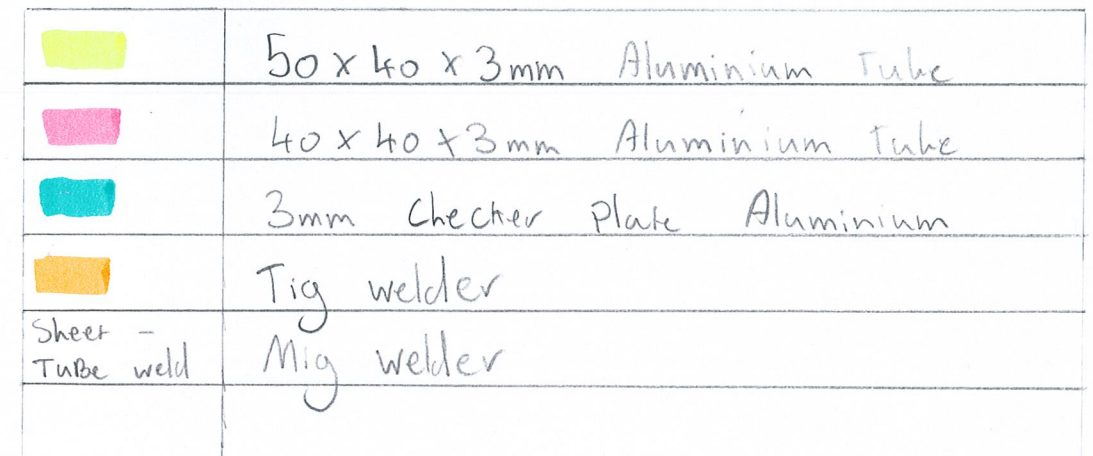 50 x 40 x 3mm Aluminium Tube
40 x 40 x 3mm Aluminium Tube
3mm Checker Plate Aluminium
Tig welder
Sheet -
TuBe weld
Mig welder